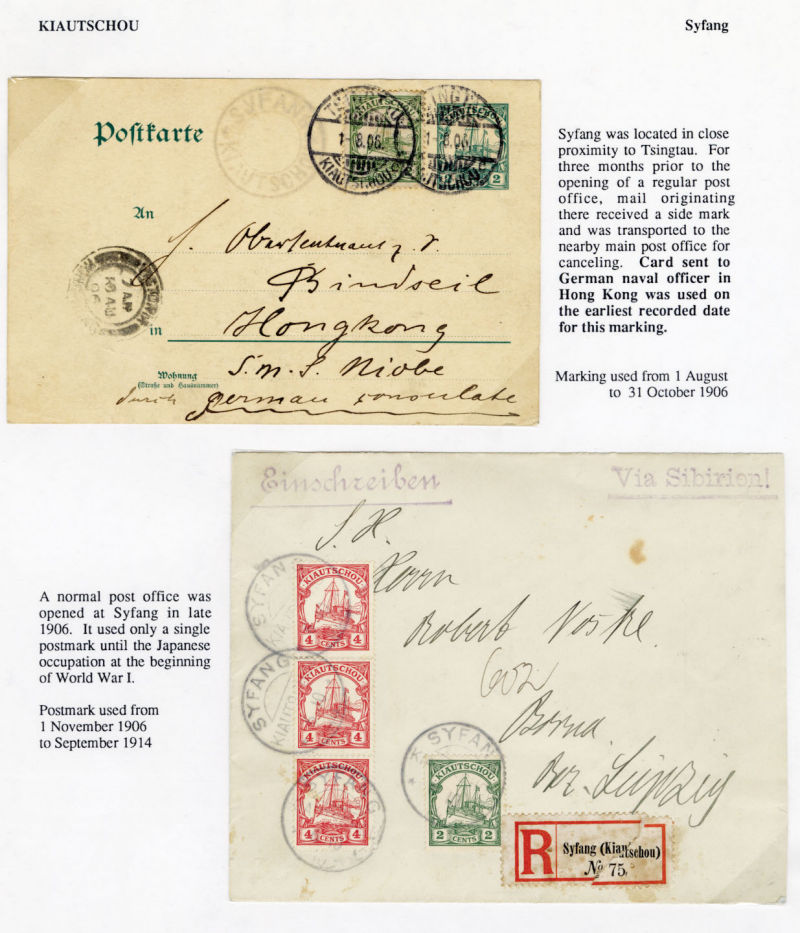 KIAUTSCHOU
Syfang
Postkarte
SYFANG
KIAUTSCHOU
KIAUTSCHOU
1-8.06
KIAUTSCHOU
KIAUTSCHOU
1-8.06
2
An
Oberleutnant z. S.
Bindseil
in Hongkong
S.M.S. Niobe
Wohnung
(Straße und Hausnummer)
durch german consulate
VICTORIA
Syfang was located in close
proximity to Tsingtau. For
three months prior to the
opening of a regular post
office, mail originating
there received a side mark
and was transported to the
nearby main post office for
canceling. Card sent to
German naval officer in
Hong Kong was used on
the earliest recorded date
for this marking.
Marking used from 1 August
to 31 October 1906
Einschreiben
Via Sibirien!
S. H.
Herrn
Robert
Borna
Bez. Leipzig
SYFANG
KIAUTSCHOU
4 CENTS 4
SYFANG
KIAUTSCHOU
4 CENTS 4
SYFANG
KIAUTSCHOU
4 CENTS 4
SYFANG
KIAUTSCHOU
2 CENTS 2
R
Syfang (Kiautschou)
No 75
A normal post office was
opened at Syfang in late
1906. It used only a single
postmark until the Japanese
occupation at the beginning
of World War I.
Postmark used from
1 November 1906
to September 1914